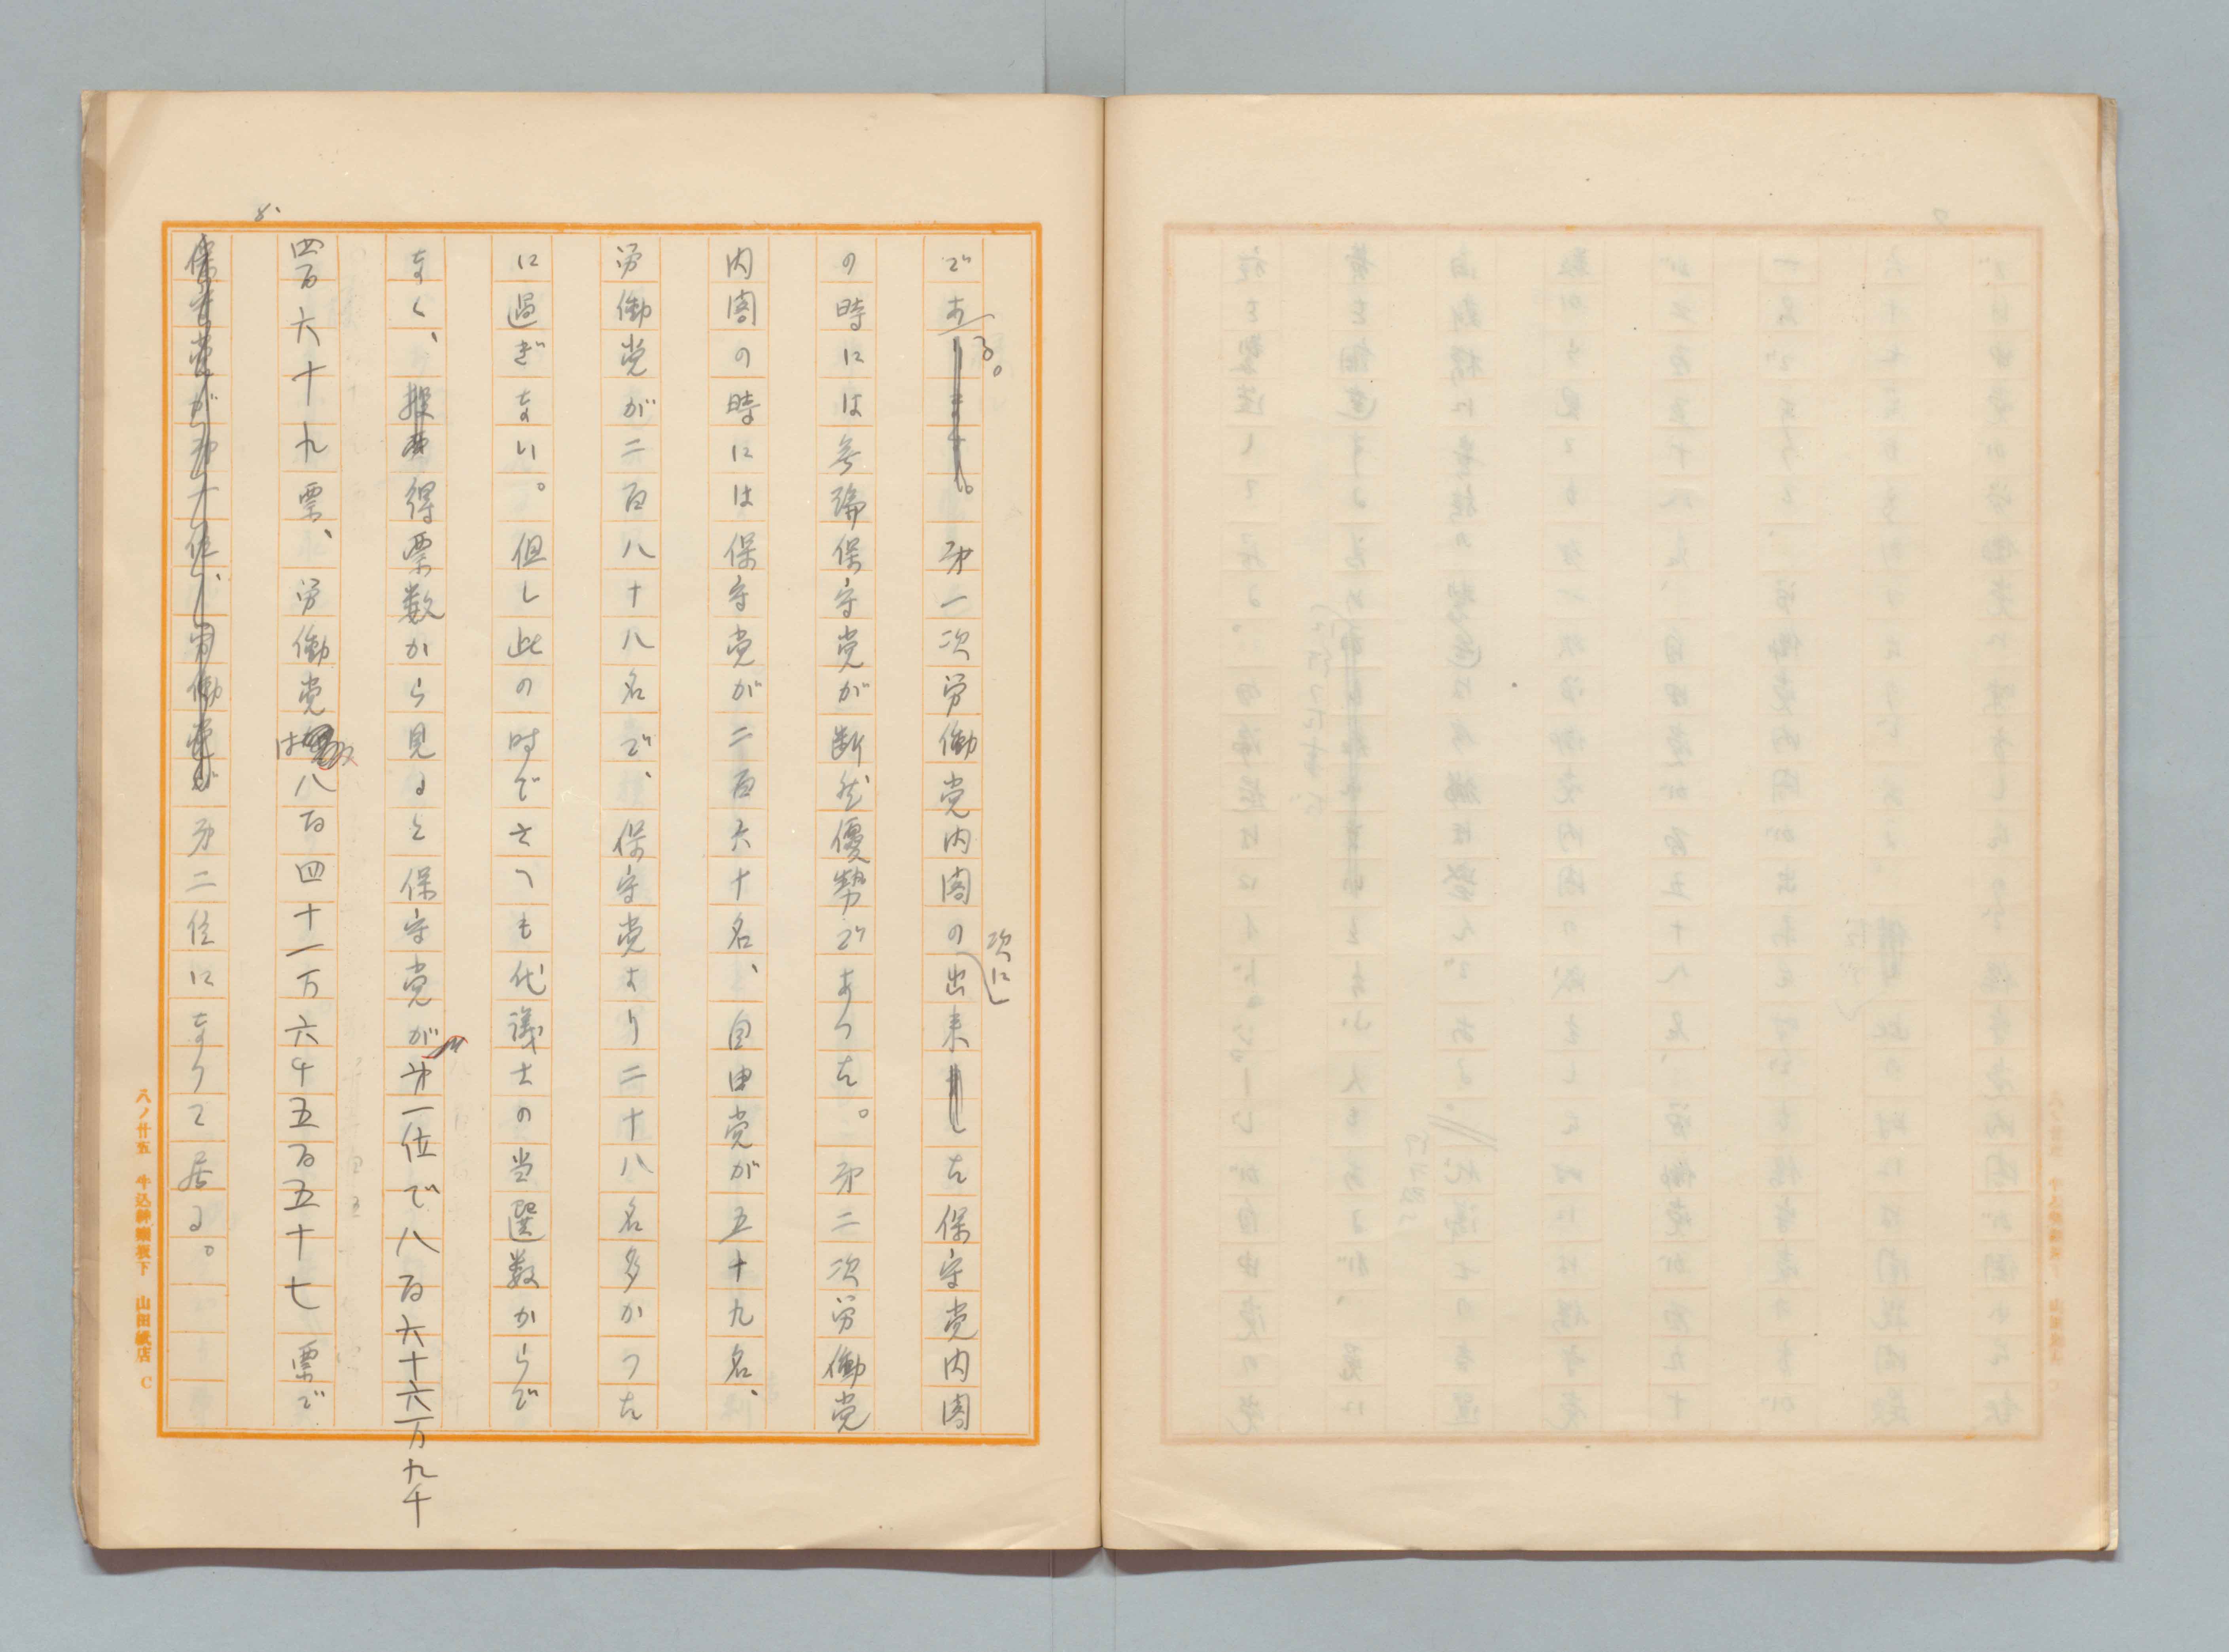 8.
である。第一次労働党内閣の次に出来た保守党内閣
の時には無論保守党が断然優勢であつた。第二次労働党
内閣の時には保守党が二百六十名、自由党が五十九名、
労働党が二百八十八名で、保守党より二十八名多かつた
に過ぎない。但し此の時でさへも代議士の当選数からで
なく、得票数から見ると保守党が第一位で八百六十六万九千
四百六十九票、労働党は八百四十一万六千五百五十七票で
第二位になつて居る。
八ノ廿五 牛込神楽坂下 山田紙店 C